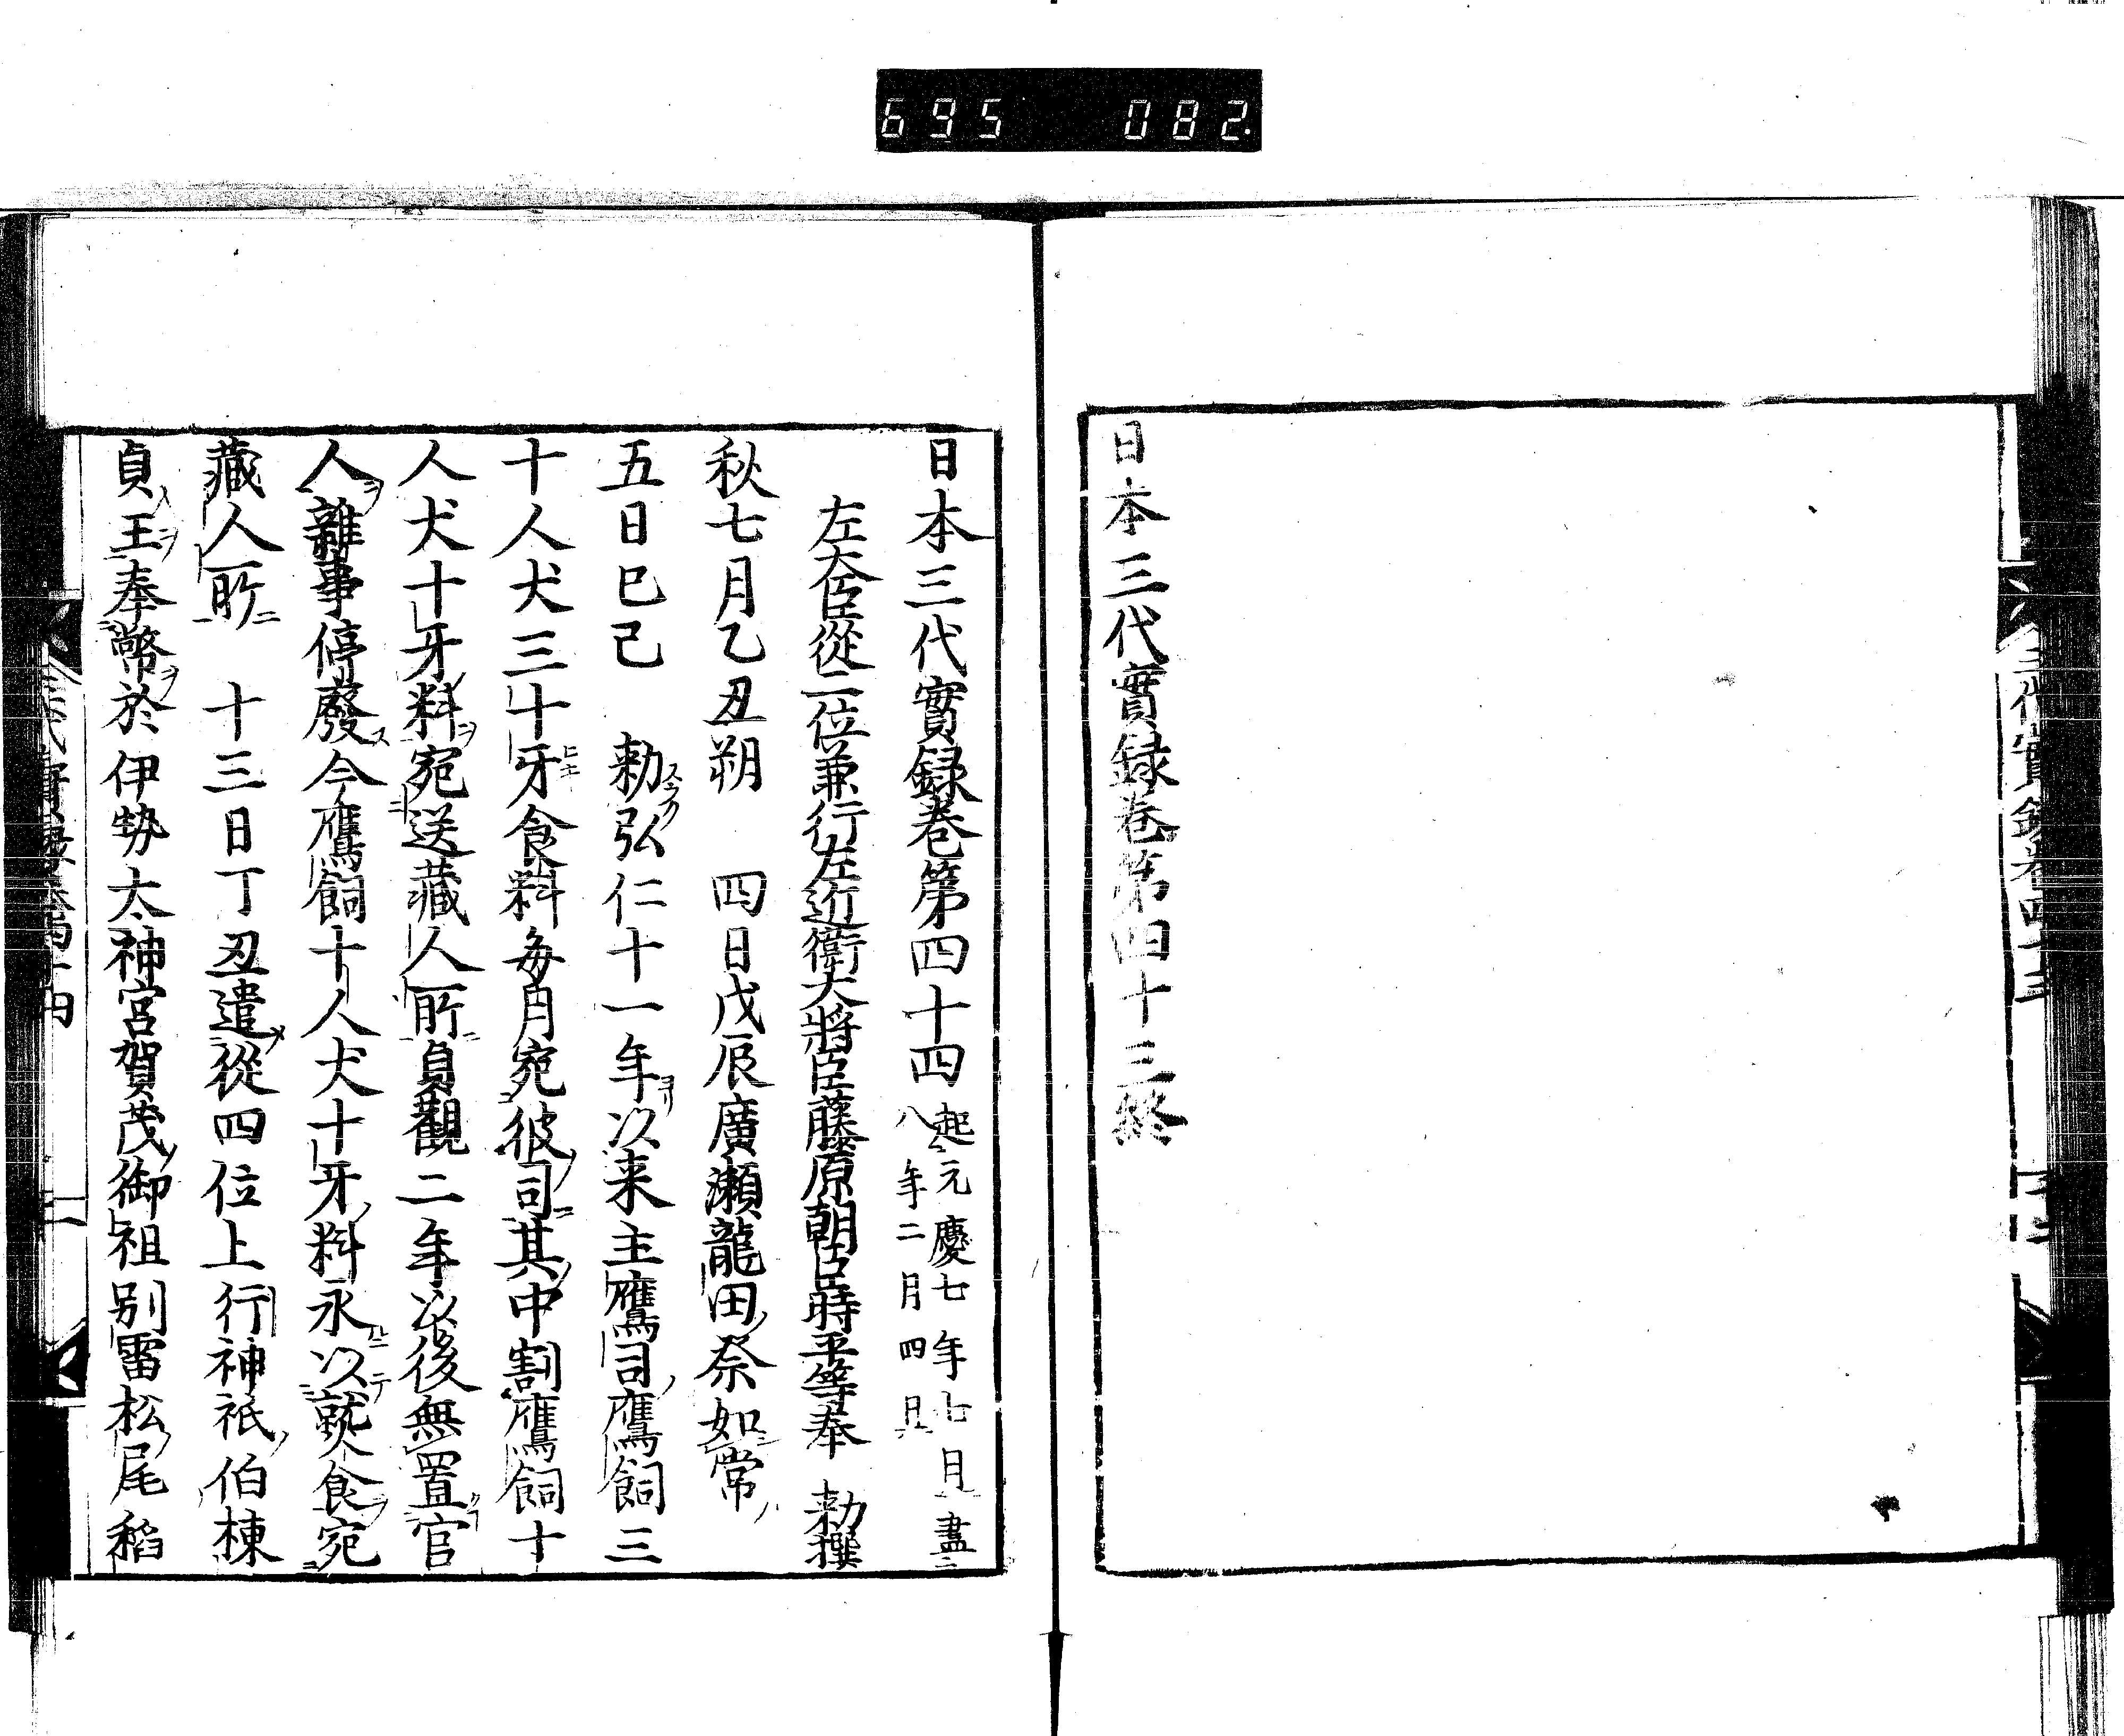 695 082
日本三代實録卷第四十三終
日本三代實録卷第四十四 起元慶七年七月盡八年二月四日
左大臣從二位兼行左近衛大將臣藤原朝臣時平等奉 勅撰
秋七月乙丑朔 四日戊辰廣瀬龍田祭如常
五日巳己 勅弘仁十一年以来主鷹司鷹飼三
十人犬三十牙食料毎月宛彼司其中割鷹飼十
人犬十牙料宛送藏人所貞觀二年以後無置官
人雜事停廢今鷹飼十人犬十牙料永以熱食宛
藏人所 十三日丁丑遣從四位上行神祇伯棟
貞王奉幣於伊勢太神宮賀茂御祖別雷松尾稻